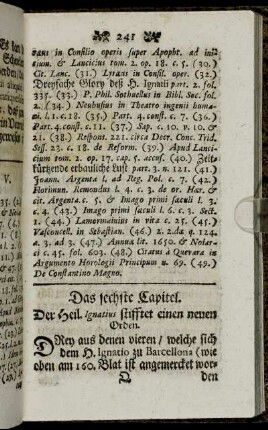 241
rans in Consilio operis super Apopht. ad ini-
tium. & Lancicius tom. 2. op. 18. c. 5. (30.)
Cit. Lanc. (31.) Lyræus in Consil. oper. (32.)
Dreyfache Glory deß H. Ignatii part. 2. fol.
235. (33.) P. Phil. Sothuellus in Bibl. Soc. fol.
2. (34.) Neuhusius in Theatro ingenii huma-
ni. l. 1. c. 18. (35.) Part. 4. const. c. 7. (36.)
Part. 4. const. c. 11. (37.) Sap. c. 10. v. 10. &
21. (38.) Respons. 221. circa Decr. Conc. Trid.
Sess. 23. c. 18. de Reform. (39.) Apud Lanci-
cium tom. 2. op. 17. cap. 5. accus. (40.) Zeit-
kürtzende erbauliche Lust part. 3. n. 121. (41.)
Joann. Argenta l. ad Reg. Pol. c. 7. (42.)
Florimun. Remondus l. 4. c. 3. de or. Hær. &
cit. Argenta. c. 5. & Imago primi sæculi l. 3.
c. 4. (43.) Imago primi sæculi l. 6. c. 3. Sect.
1. (44.) Lamormainius in vita c. 25. (45.)
Vasconcell. in Sebastian. (46.) 2. 2. da q. 124.
a. 3. ad 3. (47.) Annuæ lit. 1650. & Nolar-
ci c. 45. fol. 603. (48.) Citatus à Quevara in
Argumento Horologii Principum u. 69. (49.)
De Constantino Magno.
Das sechste Capitel.
Der Heil. Ignatius stifftet einen neuen
Orden.
DRey aus denen vieren / welche sich
dem H. Ignatio zu Barcellona (wie
oben am 160. Blat ist angemercket wor-
Q den
V.